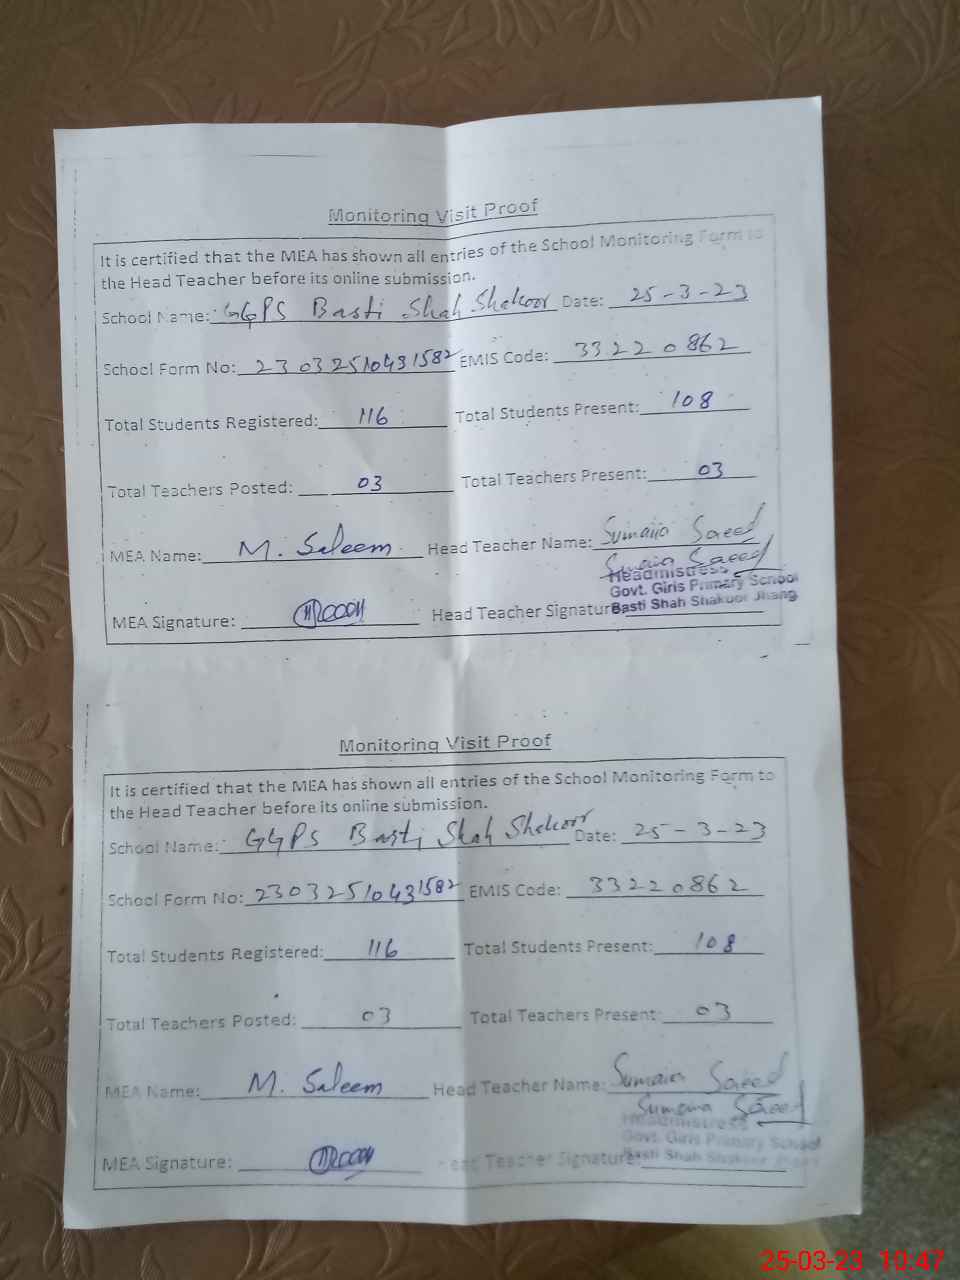 Monitoring Visit Proof
It is certified that the MEA has shown all entries of the School Monitoring Form to
the Head Teacher before its online submission.
School Name: GGPS Basti Shah Shakoor Date: 25-3-23
School Form No: 23032510431582 EMIS Code: 33220862
Total Students Registered: 116 Total Students Present: 108
Total Teachers Posted: 03 Total Teachers Present: 03
MEA Name: M. Saleem Head Teacher Name: Sumaira Saeed
Sumaira Saeed
Headmistress
Govt. Girls Primary School
MEA Signature: Head Teacher Signature: Basti Shah Shakoor Jhang
Monitoring Visit Proof
It is certified that the MEA has shown all entries of the School Monitoring Form to
the Head Teacher before its online submission.
School Name: GGPS Basti Shah Shakoor Date: 25-3-23
School Form No: 23032510431582 EMIS Code: 33220862
Total Students Registered: 116 Total Students Present: 108
Total Teachers Posted: 03 Total Teachers Present: 03
MEA Name: M. Saleem Head Teacher Name: Sumaira Saeed
Sumaira Saeed
Headmistress
Govt. Girls Primary School
MEA Signature: Head Teacher Signature: Basti Shah Shakoor Jhang
25-03-23 10:47